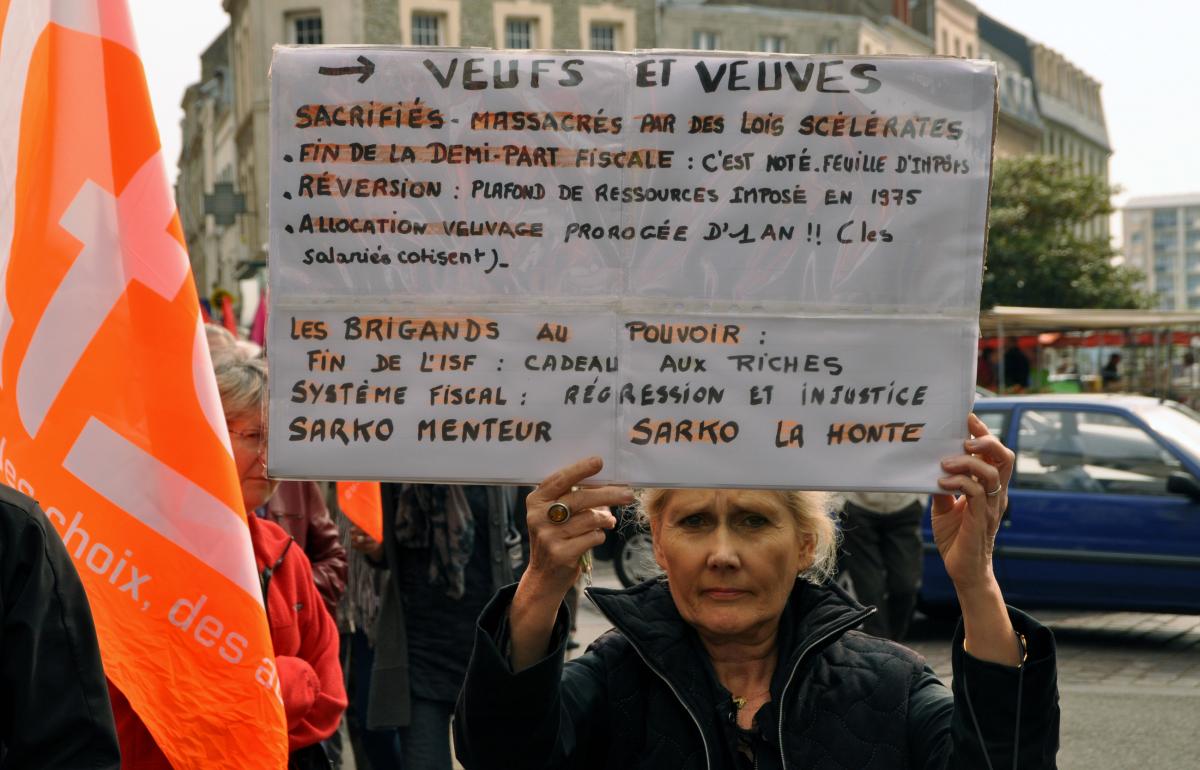 → VEUFS ET VEUVES
SACRIFIÉS - MASSACRÉS PAR DES LOIS SCÉLÉRATES
. FIN DE LA DEMI-PART FISCALE : C'EST NOTÉ. FEUILLE D'IMPÔTS
. RÉVERSION : PLAFOND DE RESSOURCES IMPOSÉ EN 1975
. ALLOCATION VEUVAGE PROROGÉE D'1 AN !! (les
salariés cotisent)_
LES BRIGANDS AU POUVOIR :
FIN DE L'ISF : CADEAU AUX RICHES
SYSTÈME FISCAL : RÉGRESSION ET INJUSTICE
SARKO MENTEUR SARKO LA HONTE
des choix, des a